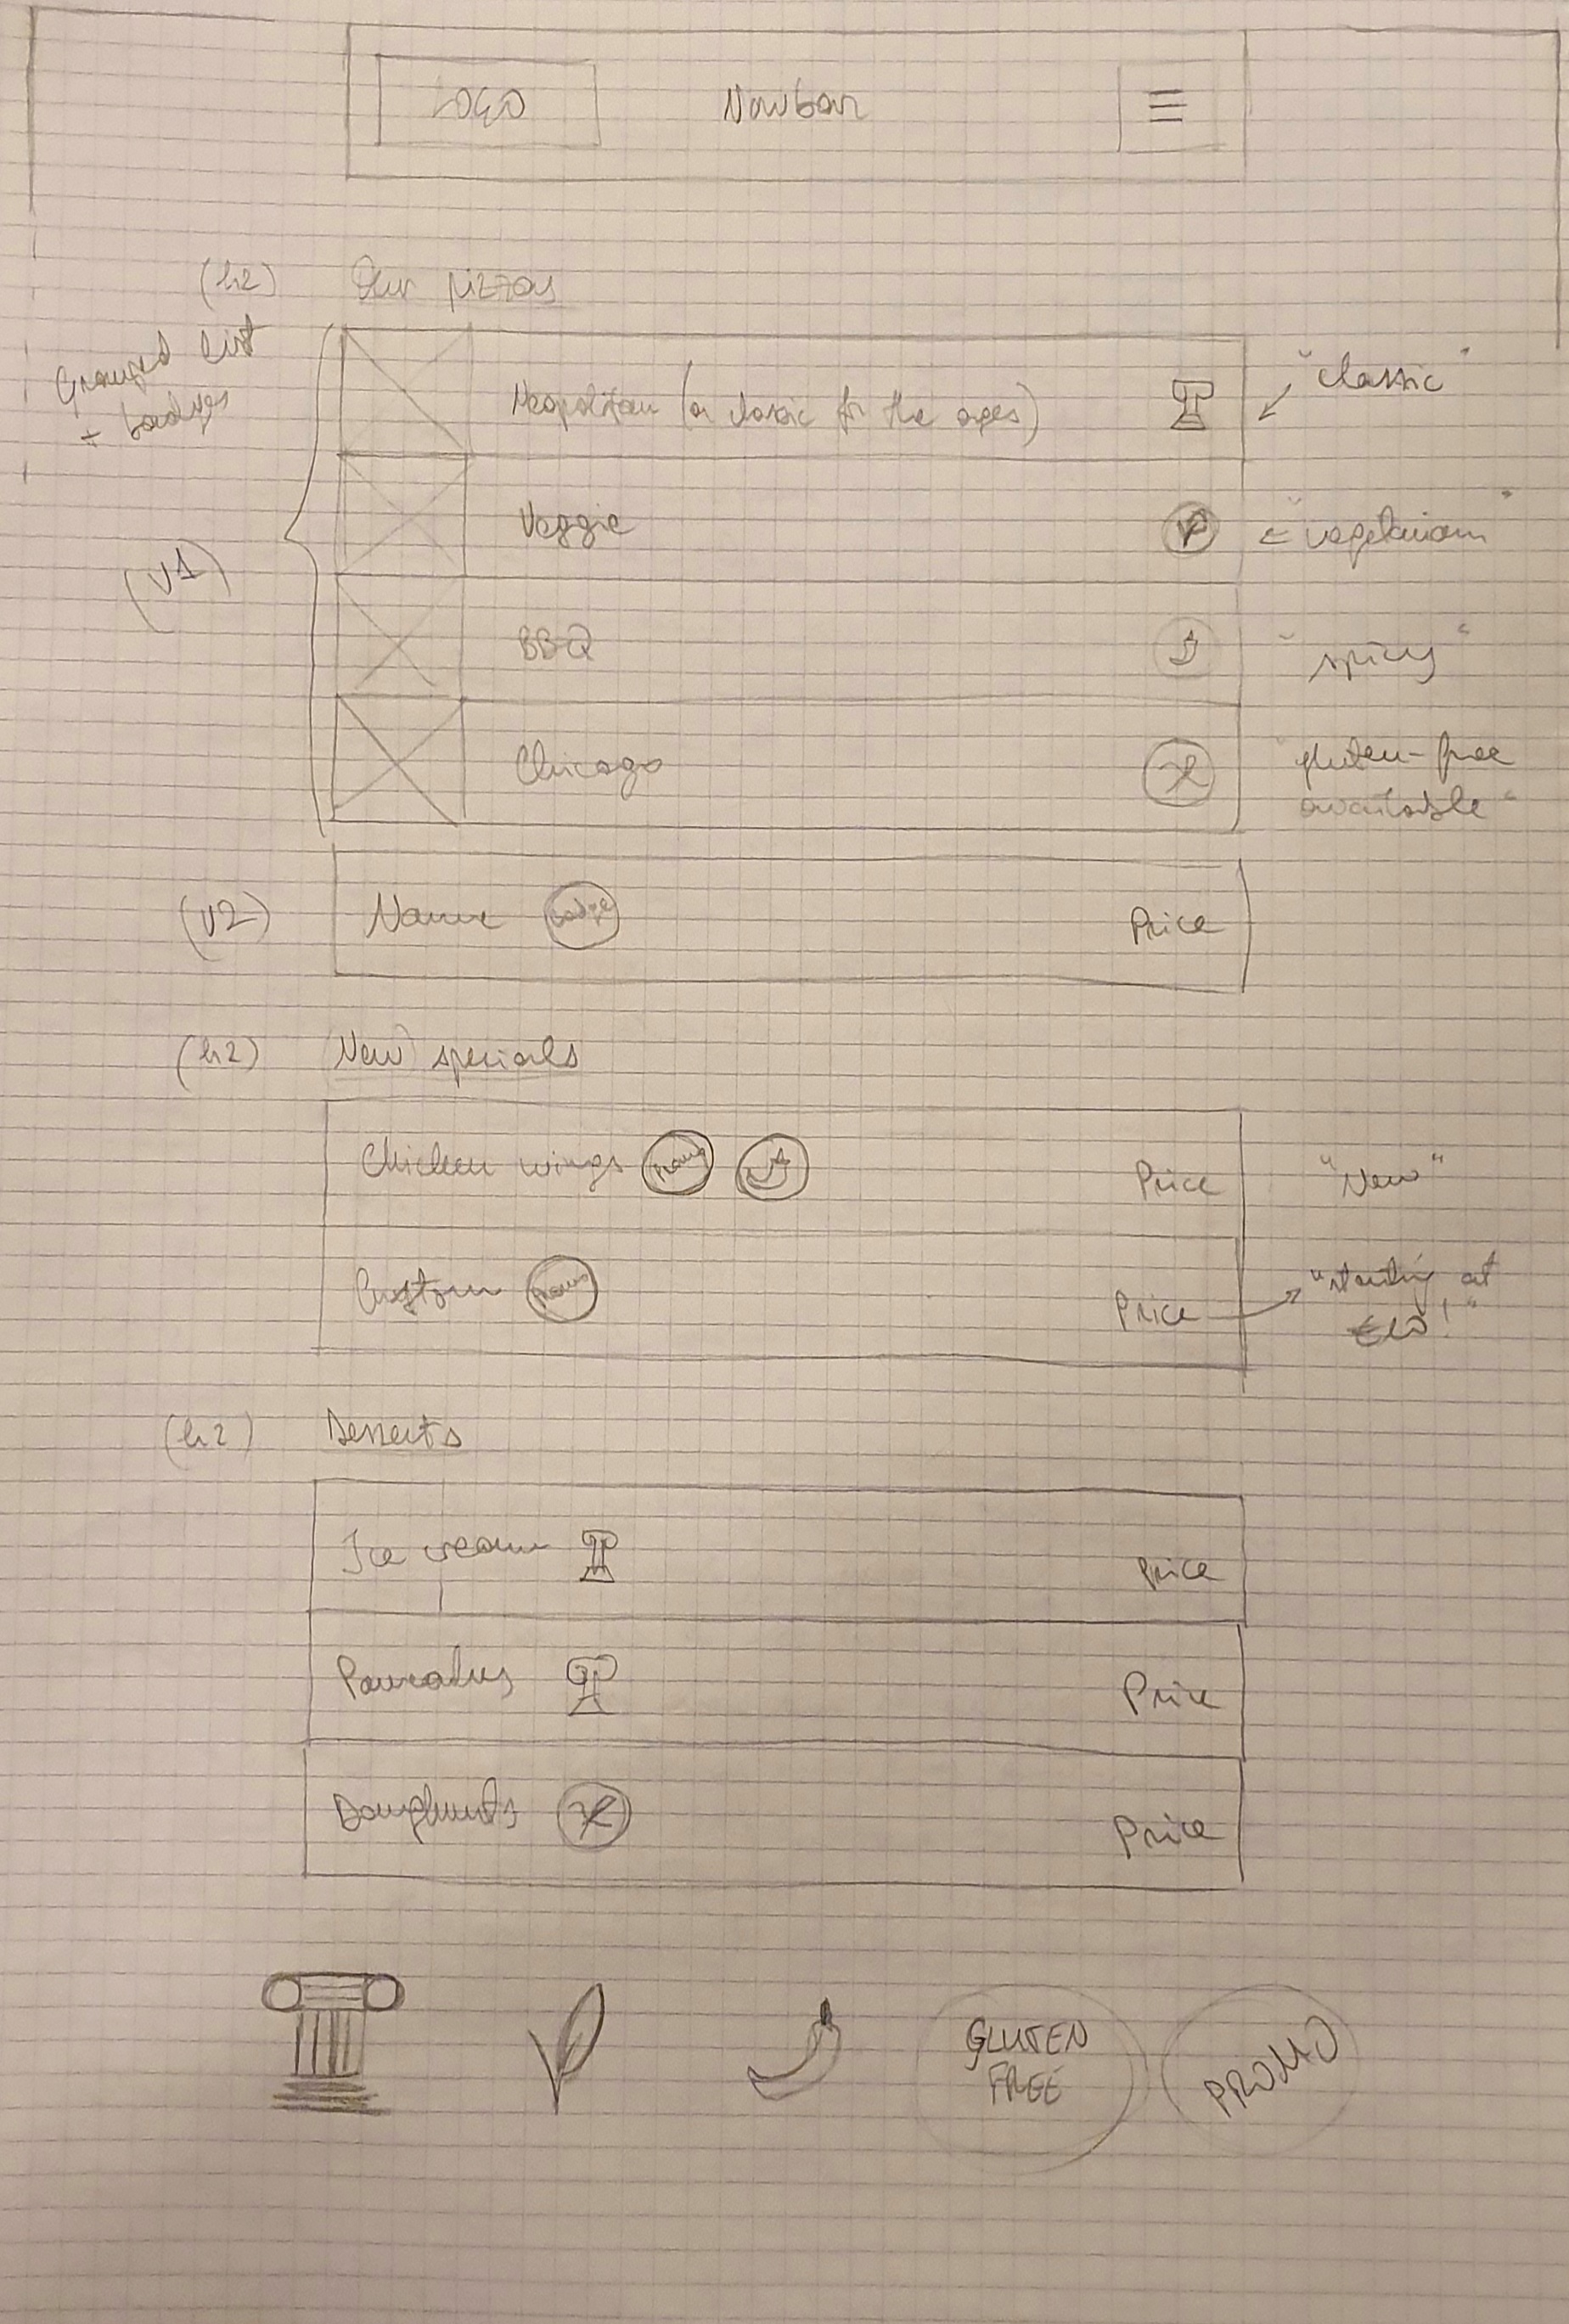 LOGO Navbar
(h2) Our pizzas
Grouped list
+ badges
Neapolitan (a classic for the ages) "classic"
Veggie "vegetarian"
(V1)
BBQ "spicy"
Chicago "gluten-free
available"
(V2) Name Badge Price
(h2) (New) specials
Chicken wings Promo Price "New"
Custom Promo Price "starting at
€10!"
(h2) Desserts
Ice cream Price
Pancakes Price
Doughnuts Price
GLUTEN
FREE
PROMO